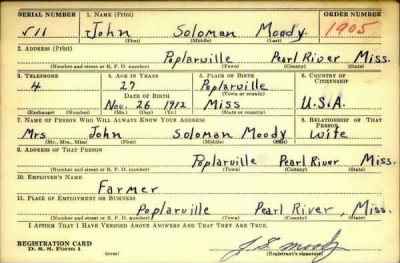 SERIAL NUMBER 1. NAME (Print) ORDER NUMBER
511 John Soloman Moody 1905
(First) (Middle) (Last)
2. ADDRESS (Print)
Poplarville Pearl River Miss.
(Number and street or R. F. D. number) (Town) (County) (State)
3. TELEPHONE 4. AGE IN YEARS 5. PLACE OF BIRTH 6. COUNTRY OF CITIZENSHIP
4 27 Poplarville
DATE OF BIRTH (Town or county)
Nov. 26 1912 Miss U.S.A.
(Exchange) (Number) (Mo.) (Day) (Yr.) (State or country)
7. NAME OF PERSON WHO WILL ALWAYS KNOW YOUR ADDRESS 8. RELATIONSHIP OF THAT PERSON
Mrs John Soloman Moody Wife
(Mr., Mrs., Miss) (First) (Middle) (Last)
9. ADDRESS OF THAT PERSON
Poplarville Pearl River Miss.
(Number and street or R. F. D. number) (Town) (County) (State)
10. EMPLOYER'S NAME
Farmer
11. PLACE OF EMPLOYMENT OR BUSINESS
Poplarville Pearl River, Miss.
(Number and street or R. F. D. number) (Town) (County) (State)
I AFFIRM THAT I HAVE VERIFIED ABOVE ANSWERS AND THAT THEY ARE TRUE.
REGISTRATION CARD
D. S. S. Form 1 J. S. Moody
(over) (Registrant's signature)